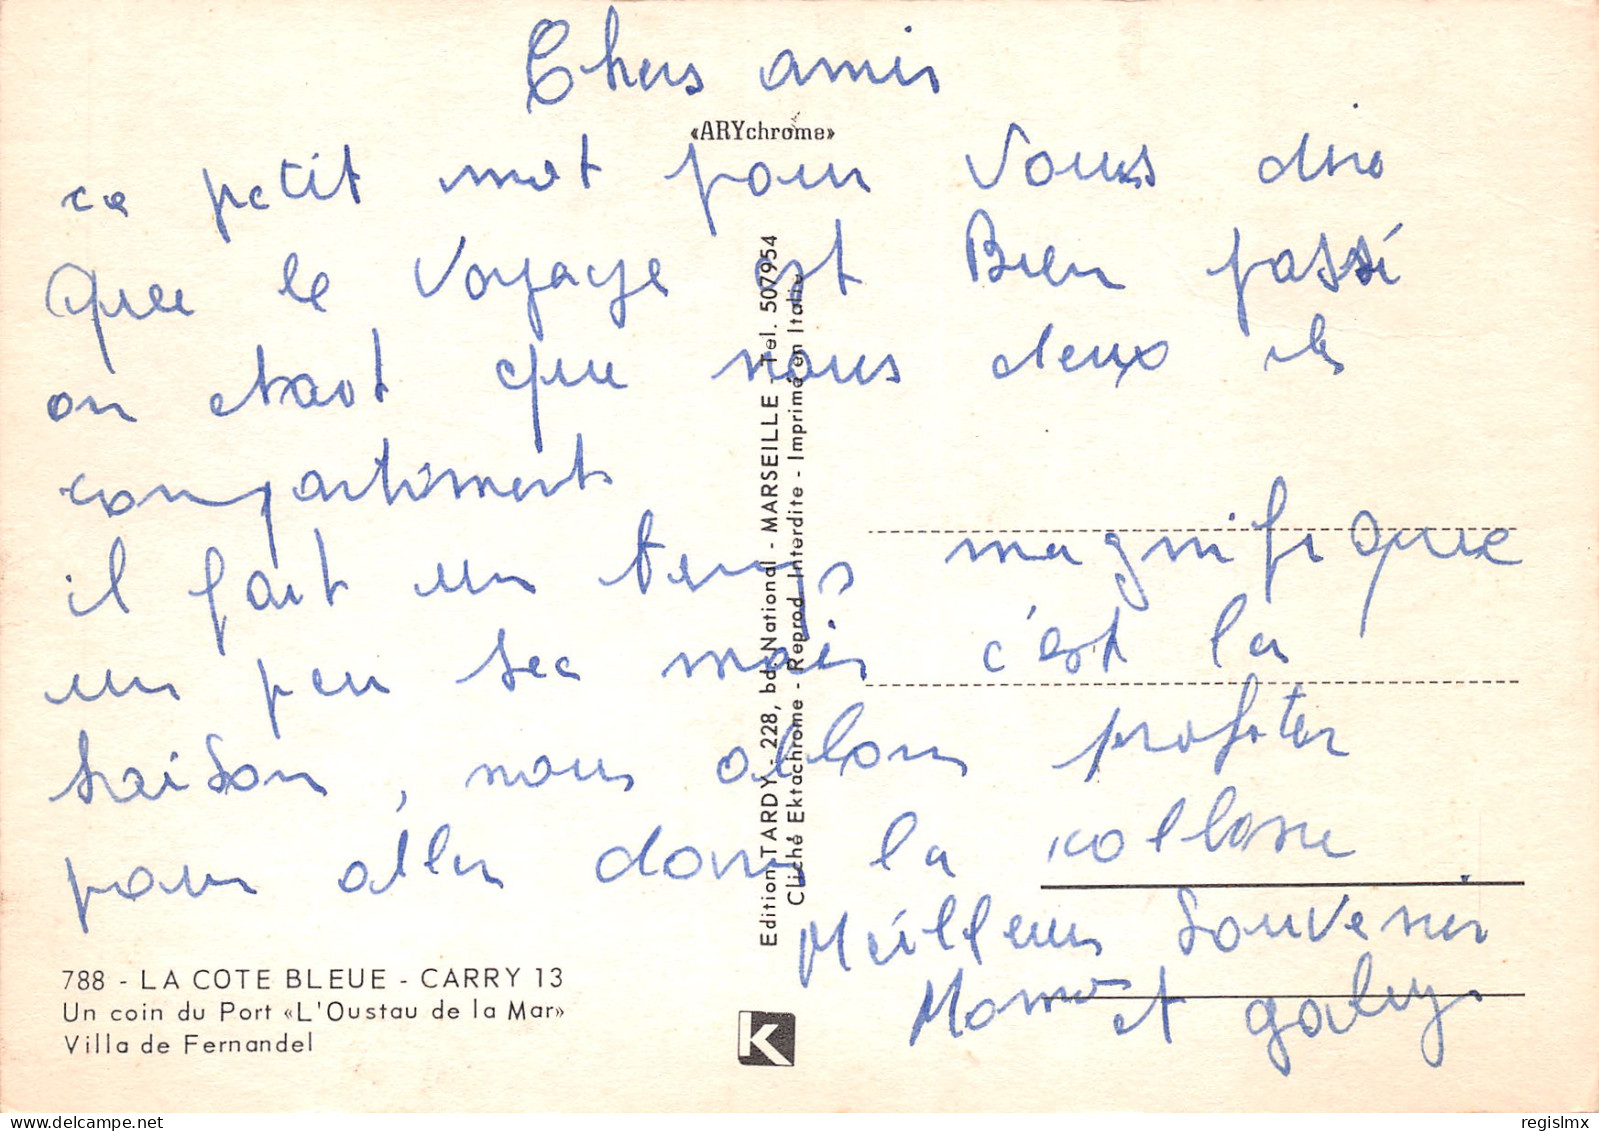 Chers amis
«ARYchrome»
ce petit mot pour vous dire
Que le voyage est Bien passé
on etaot que nous deux
compartiments
il fait un temps magnifique
un peu sec mais c'est la
saison, nous allons profiter
pour aller dans la collone
Meilleurs Souvenir
Momo et gaby.
Edition TARDY - 228, bd. National - MARSEILLE - Tel. 507954
Cliché Ektachrome - Reprod. Interdite - Imprimé en Italie
788 - LA COTE BLEUE - CARRY 13
Un coin du Port «L'Oustau de la Mar»
Villa de Fernandel
K
regislmx